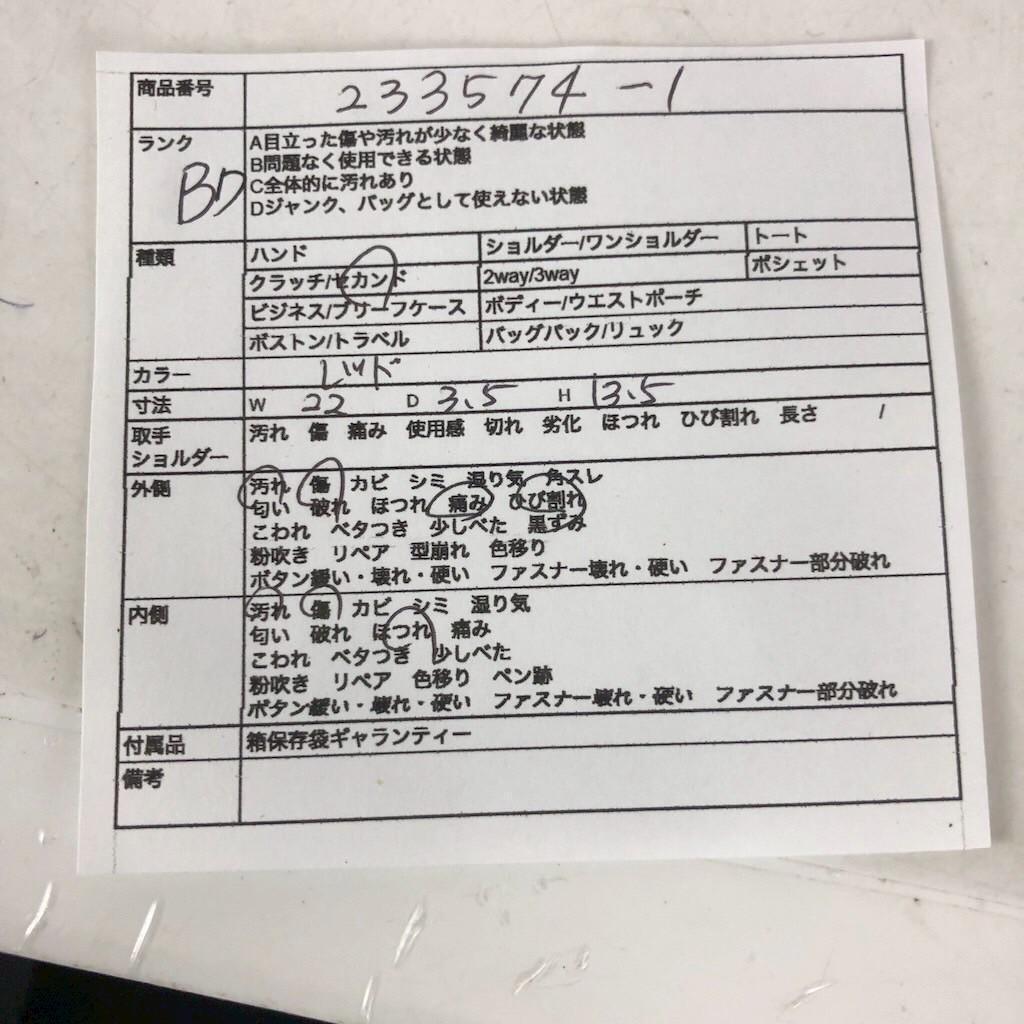 商品番号 233574-1
ランク BD
A目立った傷や汚れが少なく綺麗な状態
B問題なく使用できる状態
C全体的に汚れあり
Dジャンク、バッグとして使えない状態
種類 ハンド ショルダー/ワンショルダー トート
クラッチ/セカンド 2way/3way ポシェット
ビジネス/ブリーフケース ボディー/ウエストポーチ
ボストン/トラベル バッグパック/リュック
カラー レッド
寸法 W 22 D 3.5 H 13.5
取手 汚れ 傷 痛み 使用感 切れ 劣化 ほつれ ひび割れ 長さ /
ショルダー
外側 汚れ 傷 カビ シミ 湿り気 角スレ
匂い 破れ ほつれ 痛み ひび割れ
こわれ ベタつき 少しべた 黒ずみ
粉吹き リペア 型崩れ 色移り
ボタン緩い・壊れ・硬い ファスナー壊れ・硬い ファスナー部分破れ
内側 汚れ 傷 カビ シミ 湿り気
匂い 破れ ほつれ 痛み
こわれ ベタつき 少しべた
粉吹き リペア 色移り ペン跡
ボタン緩い・壊れ・硬い ファスナー壊れ・硬い ファスナー部分破れ
付属品 箱保存袋ギャランティー
備考